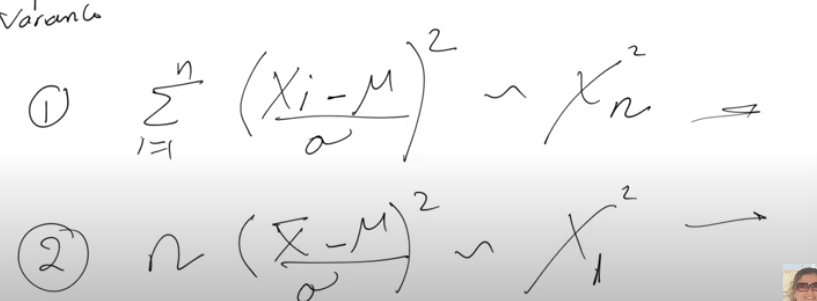 Varance
① \sum_{i=1}^{n} \left( \frac{X_i - \mu}{\sigma} \right)^2 \sim \chi^2_n \rightarrow
② n \left( \frac{\bar{X} - \mu}{\sigma} \right)^2 \sim \chi^2_1 \rightarrow